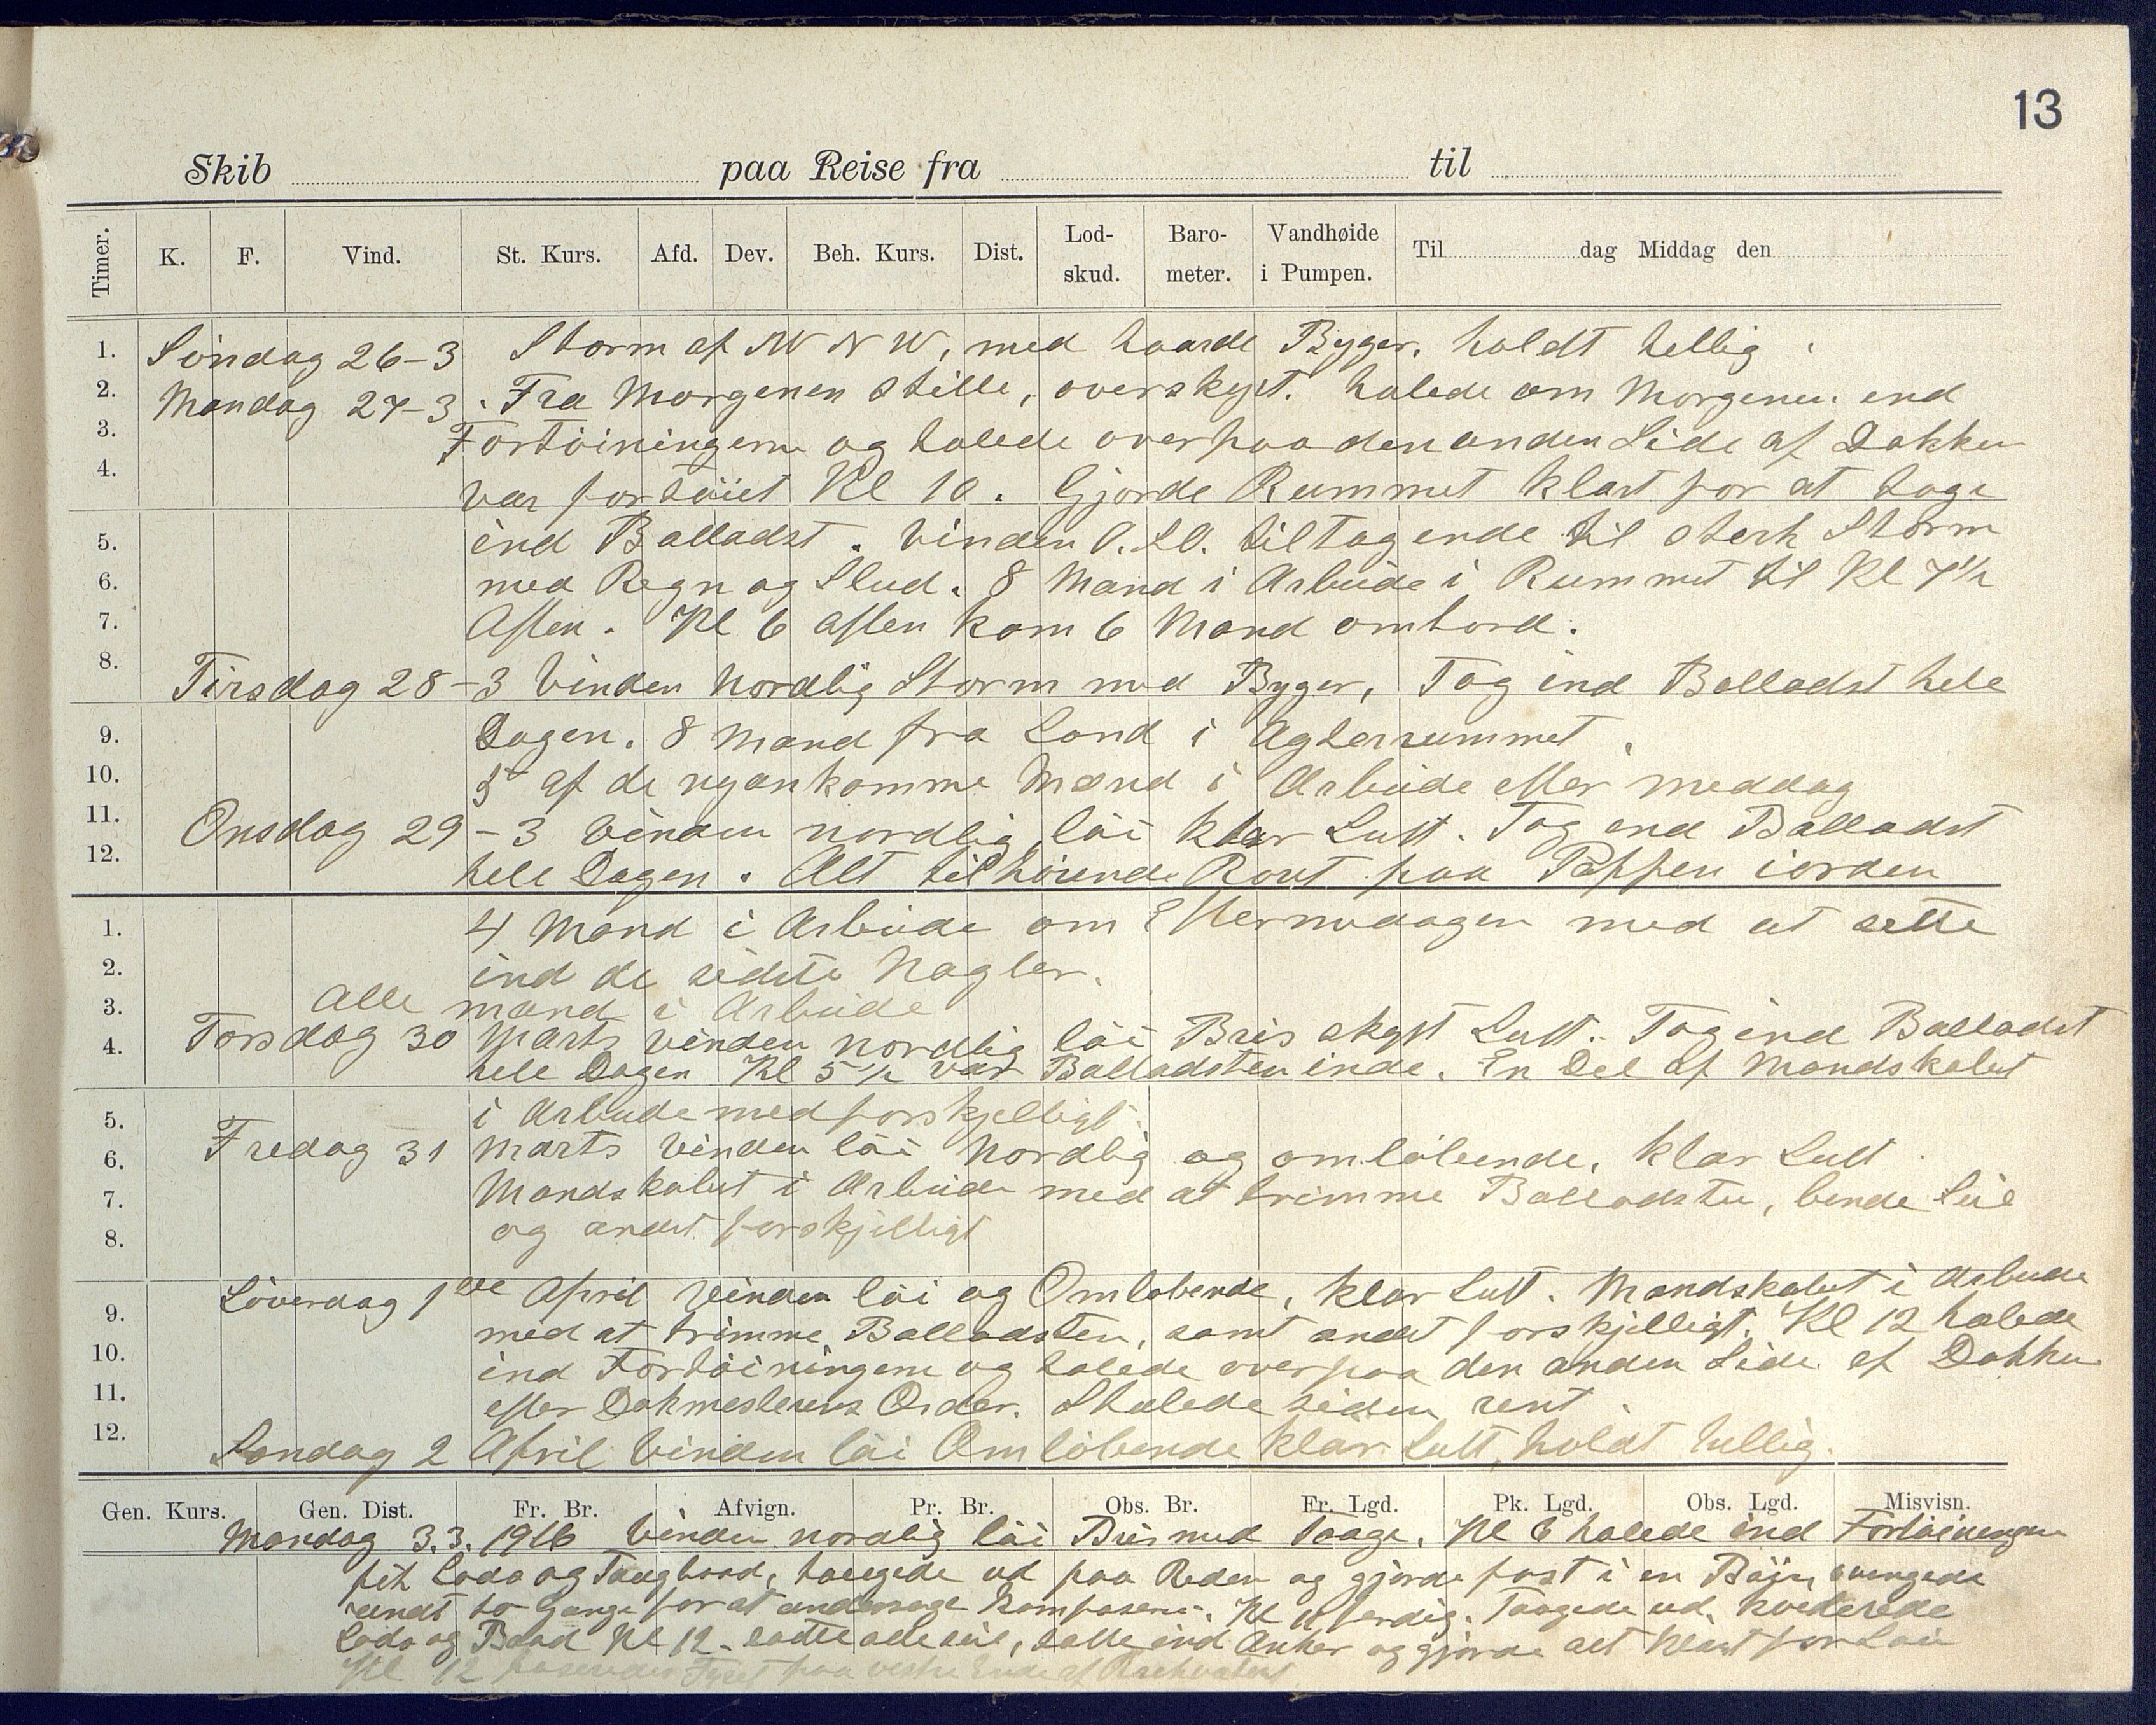 13
Skib paa Reise fra til
Timer. K. F. Vind. St. Kurs. Afd. Dev. Beh. Kurs. Dist. Lod-skud. Baro-meter. Vandhøide i Pumpen. Til dag Middag den
1. Söndag 26-3 Storm af NNW, med haarde Byger. holdt hellig.
2. Mandag 27-3. Fra Morgenen stille, overskyet. halede om Morgenen end
3. Fortöiningerne og halede over paa den anden Side af Dokken
4. var fortöiet Kl 10. Gjorde Rummet klart for at tage
5. ind Balladst. Vinden O.SO. tiltagende til sterk Storm
6. med Regn og Slud. 8 Mand i Arbeide i Rummet til Kl 7½
7. Aften. Kl 6 aften kom 6 Mand ombord.
8. Tirsdag 28-3 Vinden Nordlig Storm med Byger, Tog ind Balladst hele
9. Dagen. 8 Mand fra Land i Agterrummet.
10. 5 af de nyankomne Mænd i Arbeide efter meddag
11. Onsdag 29-3 Vinden nordlig löi klar Luft. Tog end Balladst
12. hele Dagen. Alt tilhörende Roret paa iorden
1. 4 Mand i Arbeide om Eftermedagen med at sette
2. ind de sidste Nagler.
3. Alle mand i Arbeide
4. Torsdag 30 Marts Vinden nordlig löi Bris skyet Luft. Tog ind Balladst
hele Dagen Kl 5½ var Balladsten inde. En Del af Mandskabet
5. i Arbeide med forskjelligt.
6. Fredag 31 Marts Vinden löi Nordlig og omlöbende, klar Luft.
7. Mandskabet i Arbeide med at trimme Balladsten, bende Seil
8. og andet forskjelligt
Löverdag 1ste April Vinden löi og Omlobende, klar Luft. Mandskabet i Arbeide
9. med at trimme Balladsten, samt andet forskjelligt. Kl 12 halede
10. ind Fortöiningerne og halede over paa den anden Side af Dokken
11. efter Dokmesterens Order. siden rent.
12. Söndag 2 April Vinden löi Omlöbende klar Luft, holdt hellig.
Gen. Kurs. Gen. Dist. Fr. Br. Afvign. Pr. Br. Obs. Br. Fr. Lgd. Pk. Lgd. Obs. Lgd. Misvisn.
Mandag 3.3.1916 Vinden nordlig löi Bris med Taage. Kl 6 halede ind Fortöiningene
fik Lods og Taugbaad, paa Reden og gjorde fast i en Böie, svengede
rundt to Gange for at Kompasene. Kl 11 ferdig. Taugede ud. kvederede
Lods og Baad Kl 12. satte alle seil, satte ind Anker og gjorde alt klart for
Kl 12 Fyret paa vestre Ende af